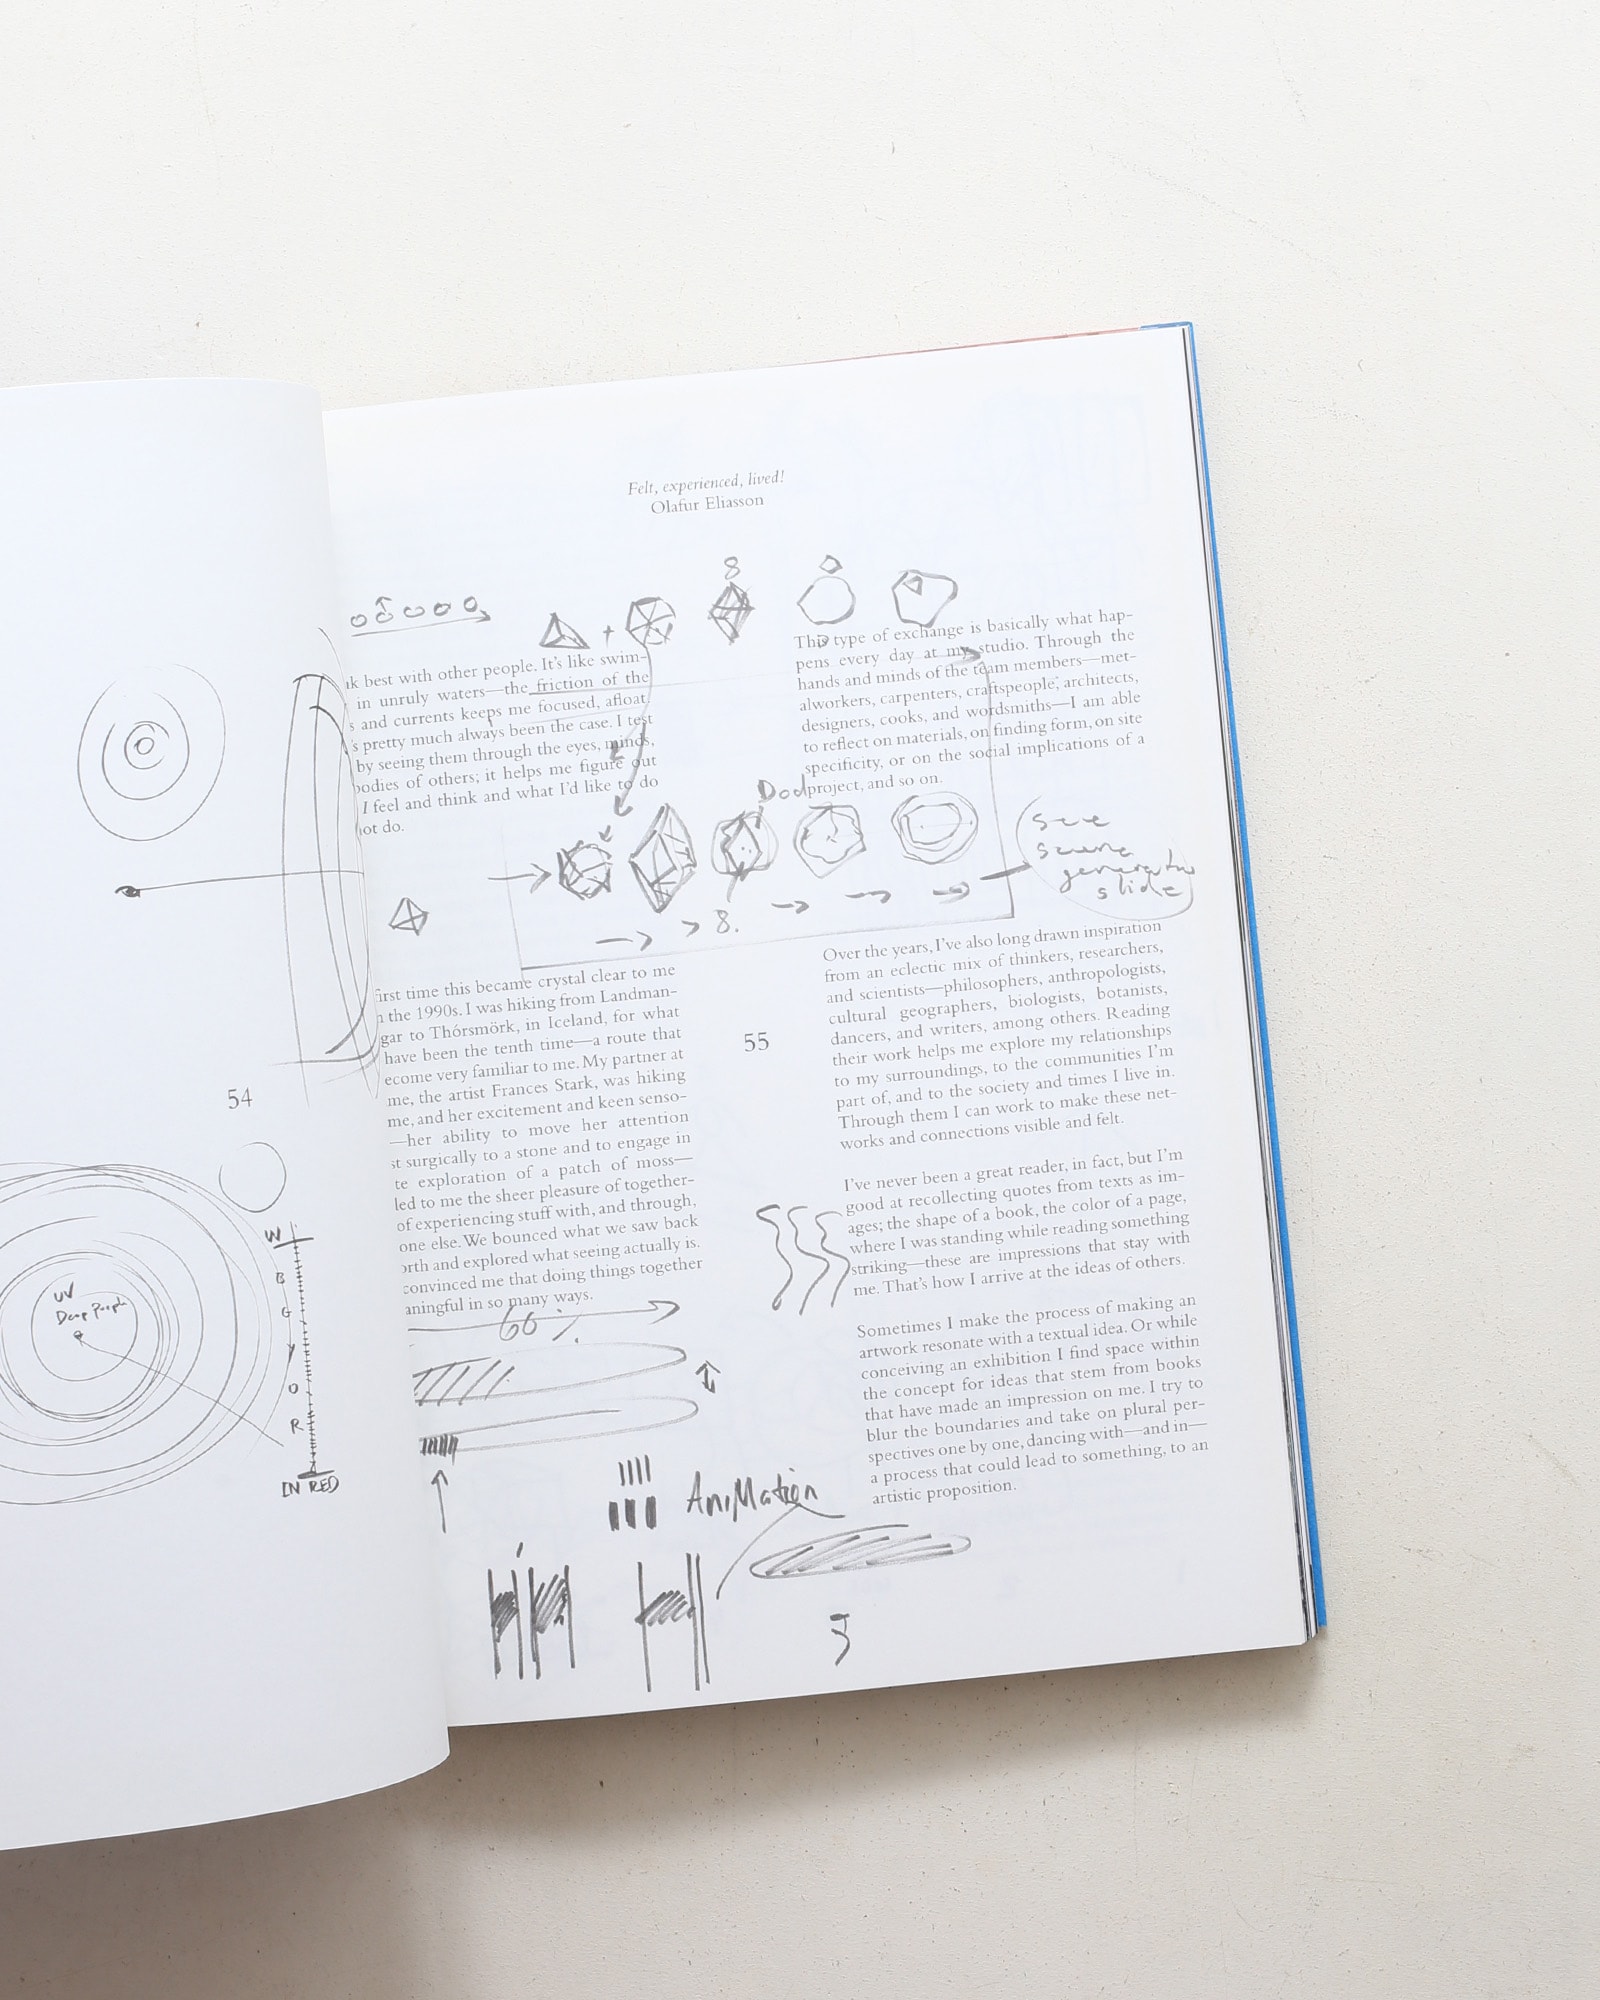 54
UV
W
B
G
Y
O
R
IN RED
Felt, experienced, lived!
Olafur Eliasson
8
best with other people. It's like swim-
in unruly waters—the friction of the
and currents keeps me focused, afloat
pretty much always been the case. I test
by seeing them through the eyes, minds,
bodies of others; it helps me figure out
I feel and think and what I'd like to do
not do.
8.
first time this became crystal clear to me
the 1990s. I was hiking from Landman-
gar to Thórsmörk, in Iceland, for what
have been the tenth time—a route that
ecome very familiar to me. My partner at
me, the artist Frances Stark, was hiking
me, and her excitement and keen senso-
—her ability to move her attention
st surgically to a stone and to engage in
te exploration of a patch of moss—
led to me the sheer pleasure of together-
of experiencing stuff with, and through,
one else. We bounced what we saw back
orth and explored what seeing actually is.
convinced me that doing things together
aningful in so many ways.
60%
AniMation
55
This type of exchange is basically what hap-
pens every day at my studio. Through the
hands and minds of the team members—met-
alworkers, carpenters, craftspeople, architects,
designers, cooks, and wordsmiths—I am able
to reflect on materials, on finding form, on site
specificity, or on the social implications of a
project, and so on.
see
generator
slide
Over the years, I've also long drawn inspiration
from an eclectic mix of thinkers, researchers,
and scientists—philosophers, anthropologists,
cultural geographers, biologists, botanists,
dancers, and writers, among others. Reading
their work helps me explore my relationships
to my surroundings, to the communities I'm
part of, and to the society and times I live in.
Through them I can work to make these net-
works and connections visible and felt.
I've never been a great reader, in fact, but I'm
good at recollecting quotes from texts as im-
ages; the shape of a book, the color of a page,
where I was standing while reading something
striking—these are impressions that stay with
me. That's how I arrive at the ideas of others.
Sometimes I make the process of making an
artwork resonate with a textual idea. Or while
conceiving an exhibition I find space within
the concept for ideas that stem from books
that have made an impression on me. I try to
blur the boundaries and take on plural per-
spectives one by one, dancing with—and in—
a process that could lead to something, to an
artistic proposition.